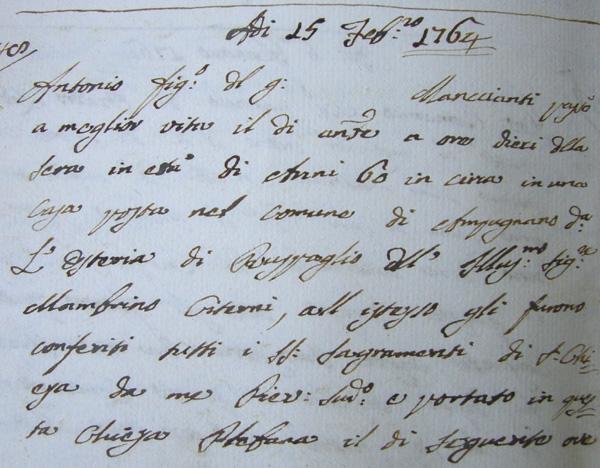 Adi 15 Feb:ro 1764
Antonio fig:o dl q: Mancianti passò
a meglior vita il di ante a ore dieci della
sera in età di Anni 60 in circa in una
Casa posta nel Comune di Ampugnano da
L'Osteria di dll' Illus:mo Sig:re
Mambrino Citerni, all istesso gli furono
conferiti tutti i SS: Sagramenti di S. Chi
esa da me Piev: Sud:o e portato in ques
ta Chiesa Plebana il di seguente ove